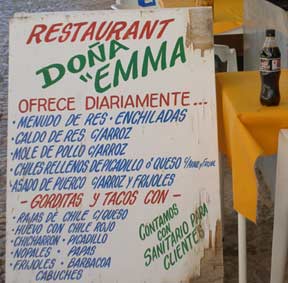 RESTAURANT
DOÑA
"EMMA
OFRECE DIARIAMENTE...
• MENUDO DE RES • ENCHILADAS
• CALDO DE RES C/ARROZ
• MOLE DE POLLO C/ARROZ
• CHILES RELLENOS DE PICADILLO ó QUESO C/ARROZ Y FRIJOL
• ASADO DE PUERCO C/ARROZ Y FRIJOLES
- GORDITAS Y TACOS CON -
• RAJAS DE CHILE C/QUESO
• HUEVO CON CHILE ROJO
• CHICHARRON • PICADILLO
• NOPALES • PAPAS
• FRIJOLES • BARBACOA
CABUCHES
CONTAMOS
CON
SANITARIO PARA
CLIENTES